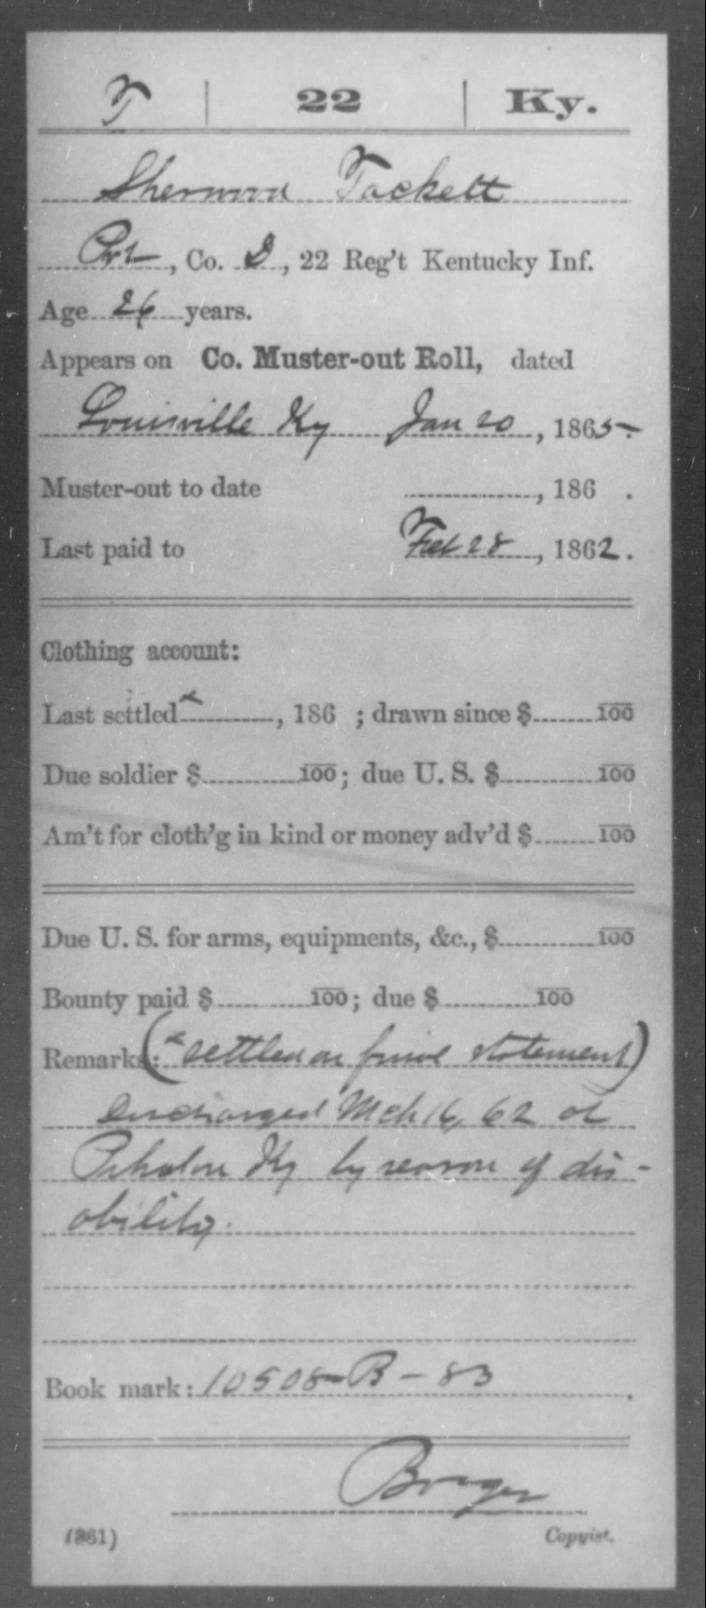 T | 22 | Ky.
Sherwood Tackett
Pvt, Co. D, 22 Reg't Kentucky Inf.
Age 26 years.
Appears on Co. Muster-out Roll, dated
Louisville Ky Jan 20, 1865.
Muster-out to date ........, 186 .
Last paid to Feb 28, 1862.
Clothing account:
Last settled x ........, 186 ; drawn since $........100
Due soldier $........100; due U. S. $........100
Am't for cloth'g in kind or money adv'd $........100
Due U. S. for arms, equipments, &c., $........100
Bounty paid $........100; due $........100
Remarks: (x settled on final statement)
Discharged Mch 16, 62 at
Piketon Ky by reason of dis-
ability.
Book mark: 10508-B-83
(361) Copyist.